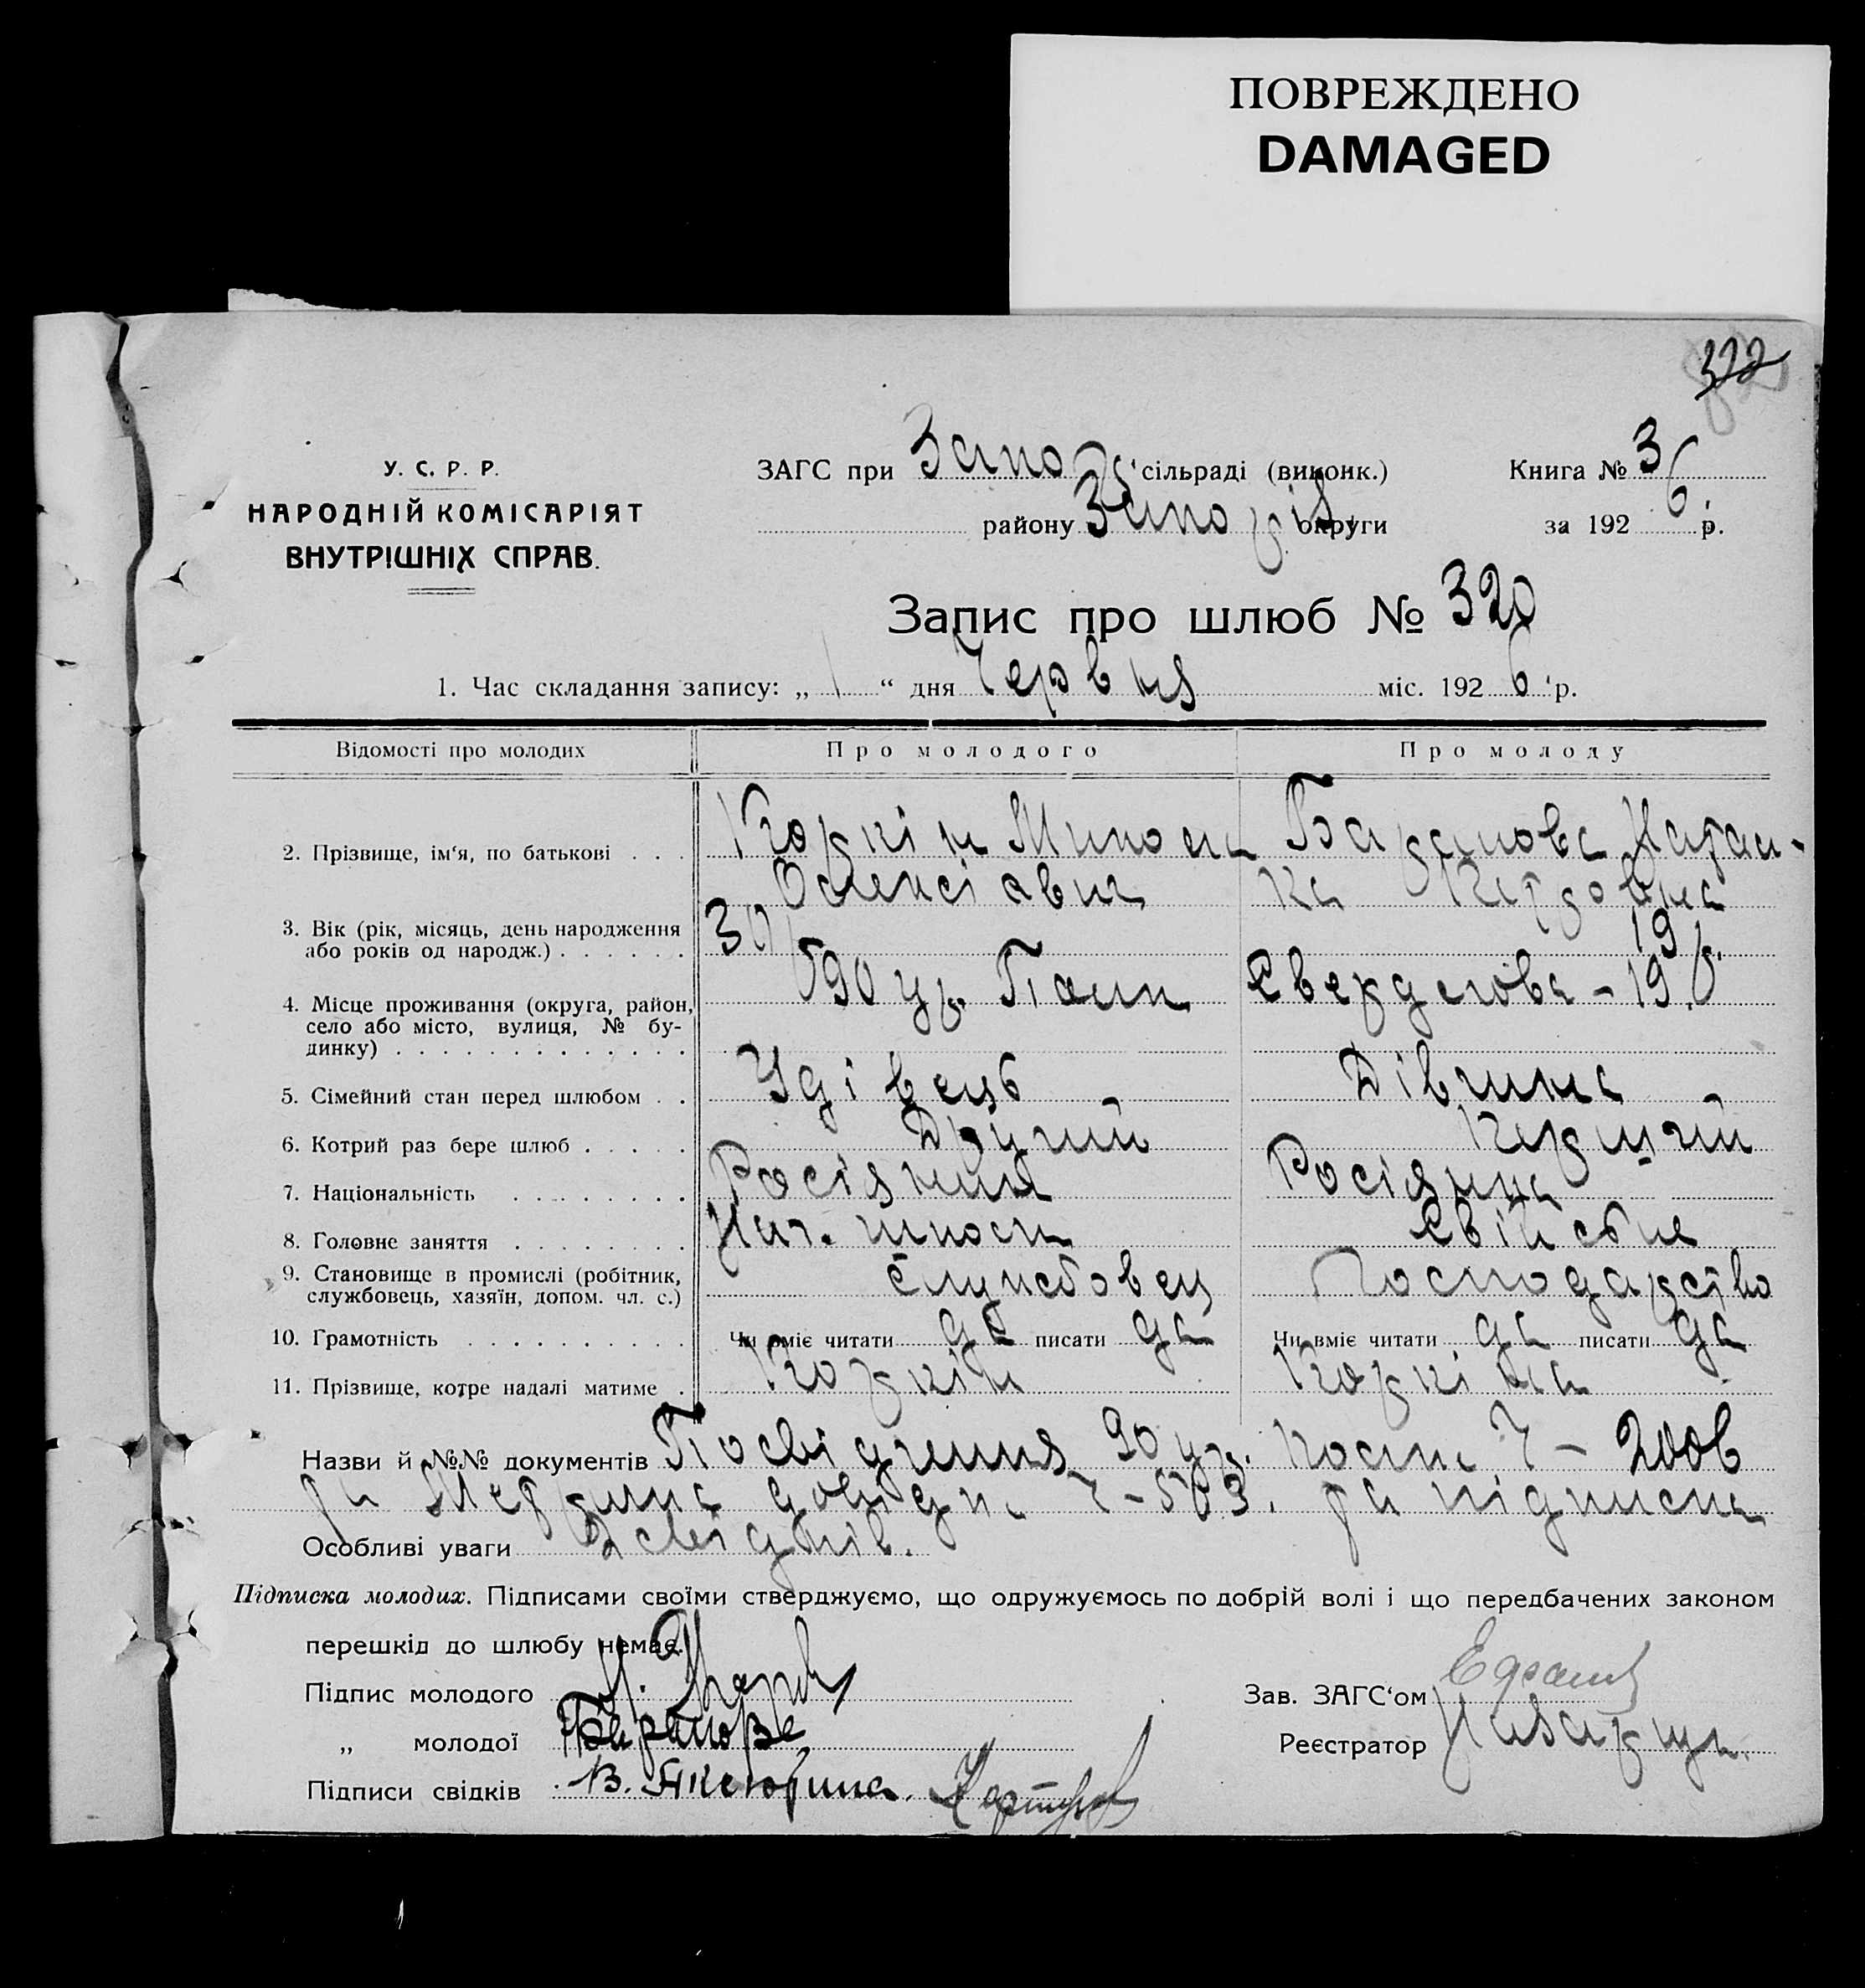 ПОВРЕЖДЕНО
DAMAGED
322
У. С. Р. Р.
НАРОДНІЙ КОМІСАРІЯТ
ВНУТРІШНІХ СПРАВ.
ЗАГС при Запоріз сільраді (виконк.)
району Запоріз округи
Книга № 3
за 192 6 р.
Запис про шлюб № 320
1. Час складання запису: „ 1 “ дня Червня міс. 192 6 р.
Відомості про молодих
Про молодого
Про молоду
2. Прізвище, ім‘я, по батькові . . .
Коркін Микола
Олексієвич
Баранова Натал-
ка Петровна
3. Вік (рік, місяць, день народження
або років од народж.) . . . . . .
30
19
4. Місце проживання (округа, район,
село або місто, вулиця, № бу-
динку) . . . . . . . . . . . . .
90 Полк
Свердлова – 19
5. Сімейний стан перед шлюбом . .
Удівець
Дівчина
6. Котрий раз бере шлюб . . . . .
Другий
Перший
7. Національність . . . . . . . .
Росіянин
Росіянка
8. Головне заняття . . . . . . . .
Нач.
Свійське
9. Становище в промислі (робітник,
службовець, хазяїн, допом. чл. с.)
Службовец
Господарство
10. Грамотність . . . . . . . . . .
Чи вміє читати да писати да
Чи вміє читати да писати да
11. Прізвище, котре надалі матиме .
Коркін
Коркіна
Назви й №№ документів Посвідчення 90 Ч – 2006
та Метрична довідка Ч – 503. та підписка
Особливі уваги 2 свідків.
Підписка молодих. Підписами своїми стверджуємо, що одружуємось по добрій волі і що передбачених законом
перешкід до шлюбу немає.
Підпис молодого
„ молодої Баранова
Підписи свідків В.
Зав. ЗАГС‘ом
Реєстратор